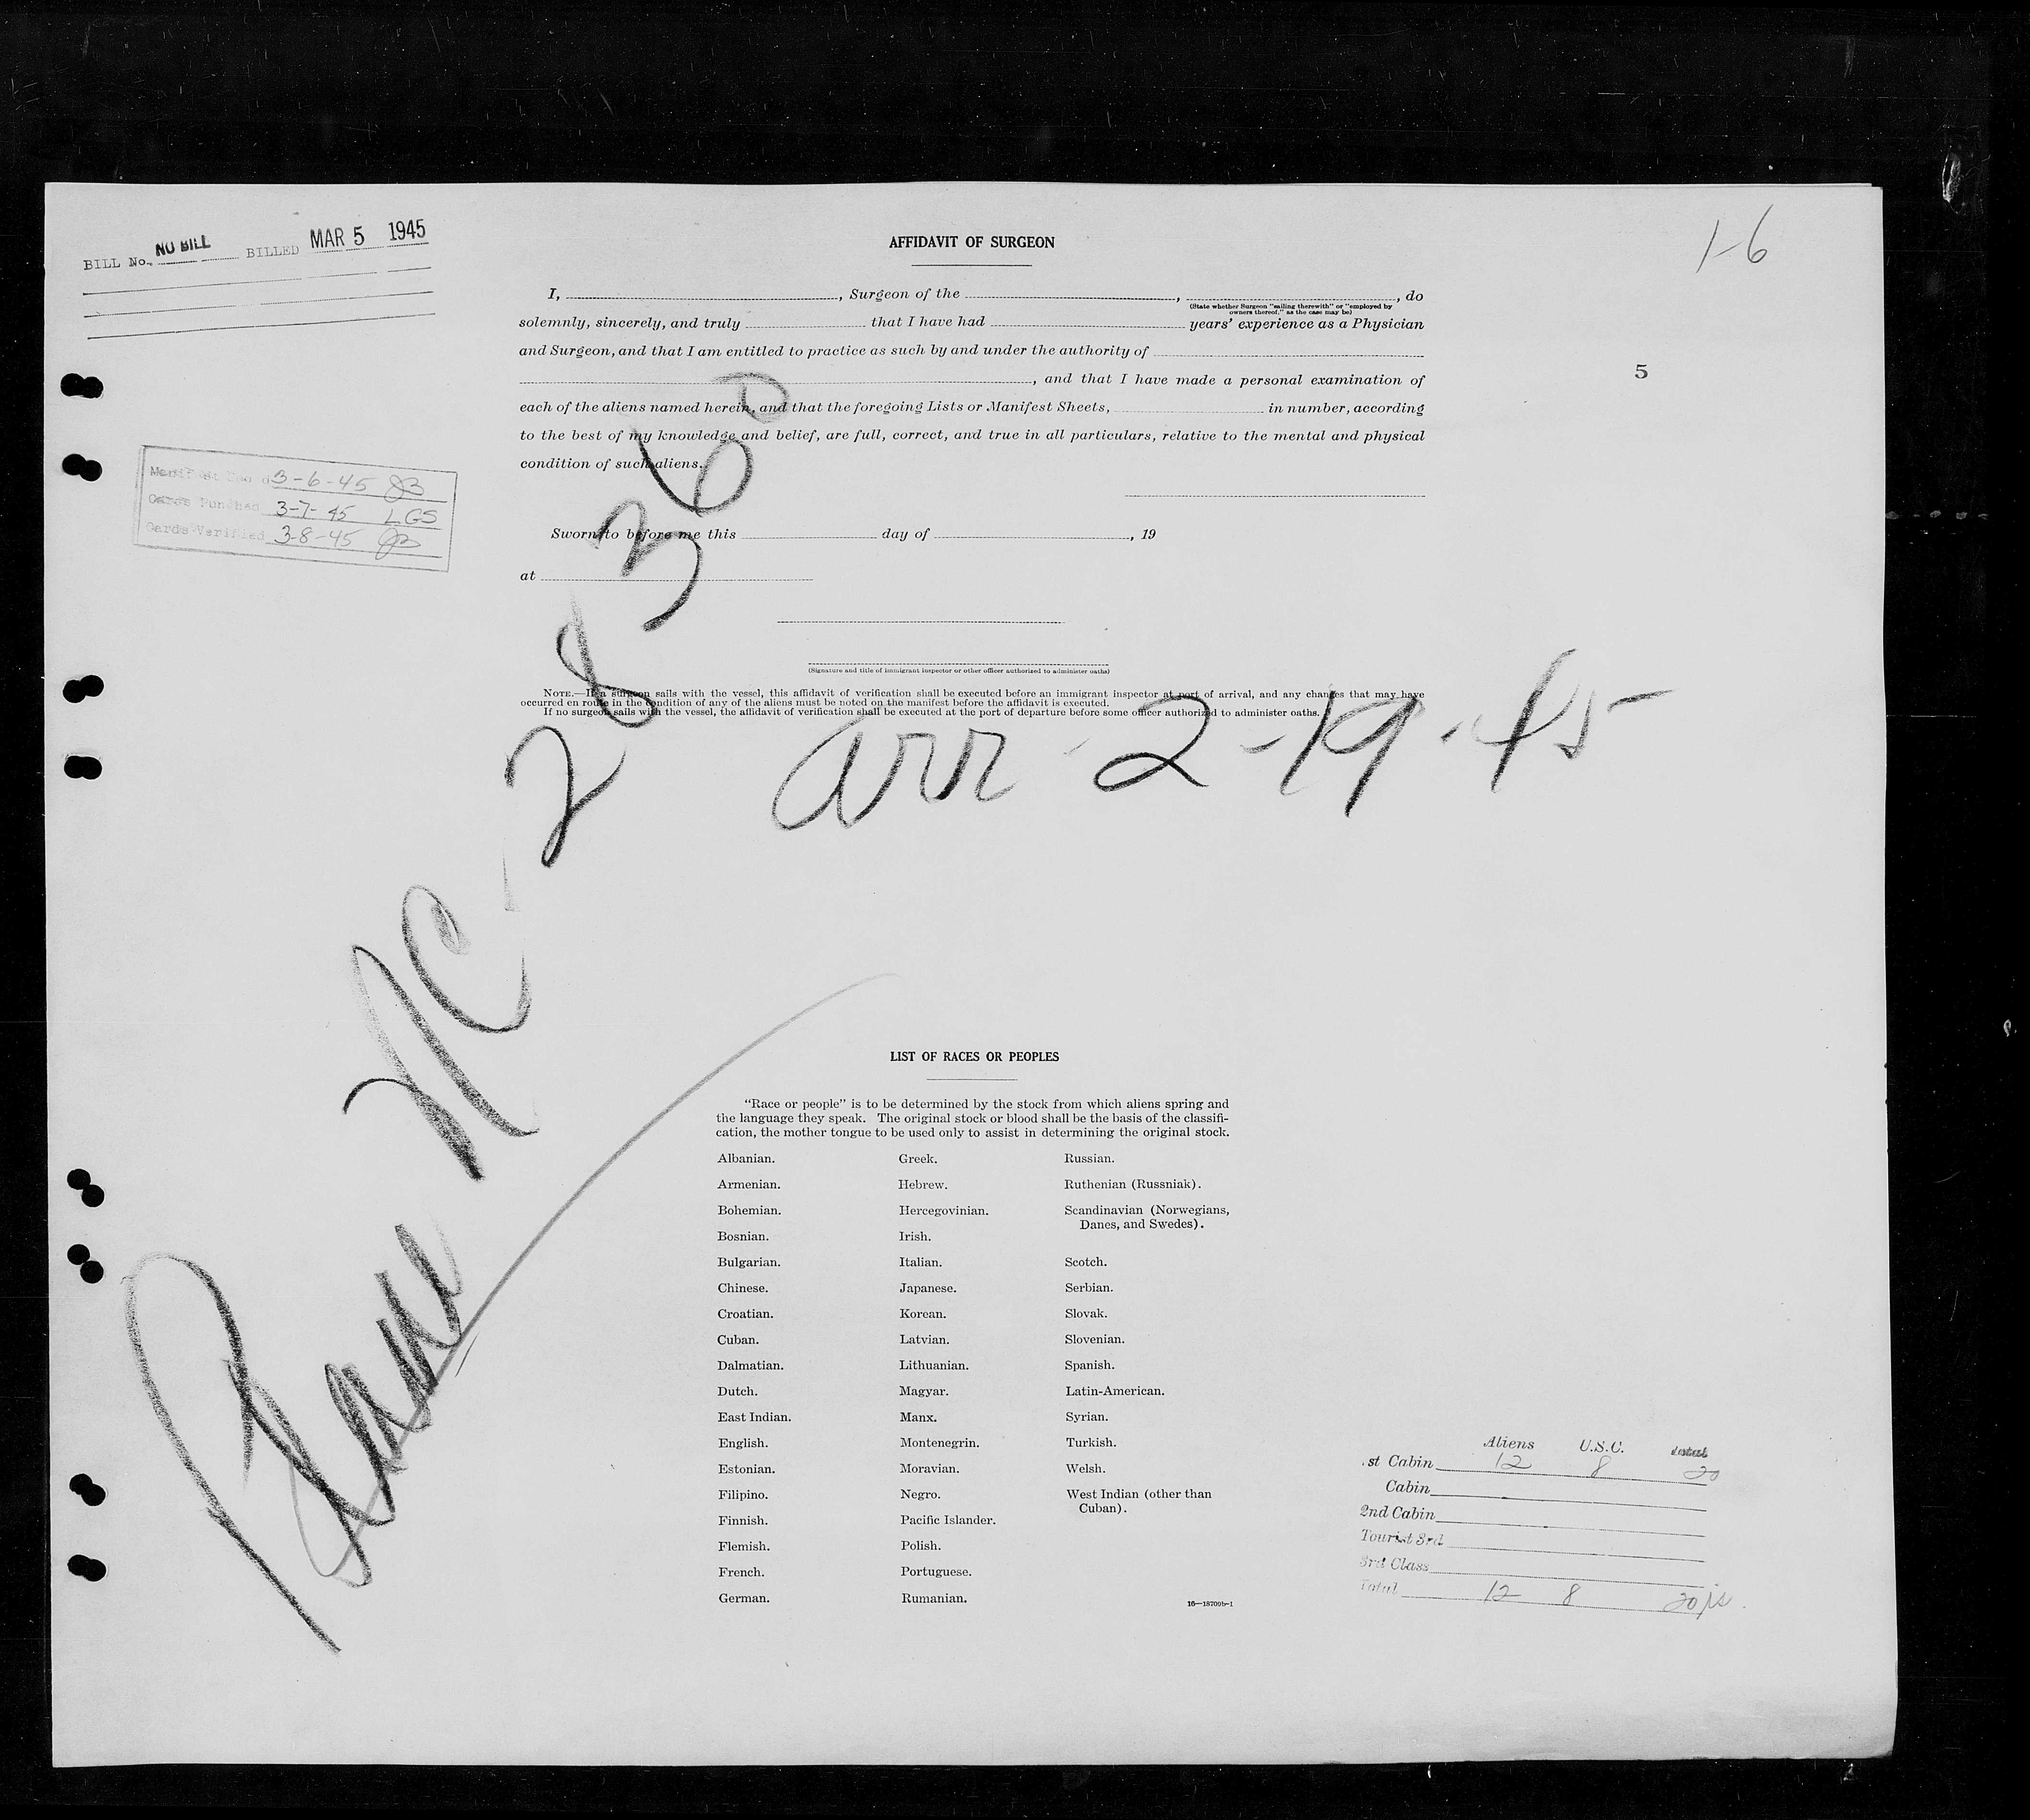 BILL No. NO BILL BILLED MAR 5 1945
1-6
AFFIDAVIT OF SURGEON
I, , Surgeon of the , , do
(State whether Surgeon "sailing therewith" or "employed by
owners thereof," as the case may be)
solemnly, sincerely, and truly that I have had years' experience as a Physician
and Surgeon, and that I am entitled to practice as such by and under the authority of
, and that I have made a personal examination of
5
each of the aliens named herein, and that the foregoing Lists or Manifest Sheets, in number, according
to the best of my knowledge and belief, are full, correct, and true in all particulars, relative to the mental and physical
condition of such aliens.
Manifest 3-6-45 JB
Cards Punched 3-7-45 LGS
Cards Verified 3-8-45 JB
Sworn to before me this day of , 19
at
(Signature and title of immigrant inspector or other officer authorized to administer oaths)
NOTE.—If a surgeon sails with the vessel, this affidavit of verification shall be executed before an immigrant inspector at port of arrival, and any changes that may have
occurred en route in the condition of any of the aliens must be noted on the manifest before the affidavit is executed.
If no surgeon sails with the vessel, the affidavit of verification shall be executed at the port of departure before some officer authorized to administer oaths.
Plane NC-28360
arr 2-19-45
LIST OF RACES OR PEOPLES
"Race or people" is to be determined by the stock from which aliens spring and
the language they speak. The original stock or blood shall be the basis of the classifi-
cation, the mother tongue to be used only to assist in determining the original stock.
Albanian. Greek. Russian.
Armenian. Hebrew. Ruthenian (Russniak).
Bohemian. Hercegovinian. Scandinavian (Norwegians,
Danes, and Swedes).
Bosnian. Irish.
Bulgarian. Italian. Scotch.
Chinese. Japanese. Serbian.
Croatian. Korean. Slovak.
Cuban. Latvian. Slovenian.
Dalmatian. Lithuanian. Spanish.
Dutch. Magyar. Latin-American.
East Indian. Manx. Syrian.
English. Montenegrin. Turkish.
Estonian. Moravian. Welsh.
Filipino. Negro. West Indian (other than
Cuban).
Finnish. Pacific Islander.
Flemish. Polish.
French. Portuguese.
German. Rumanian.
16—18709b-1
Aliens U.S.C. Total
st Cabin 12 8 20
Cabin
2nd Cabin
Tourist 3rd
3rd Class
Total 12 8 20